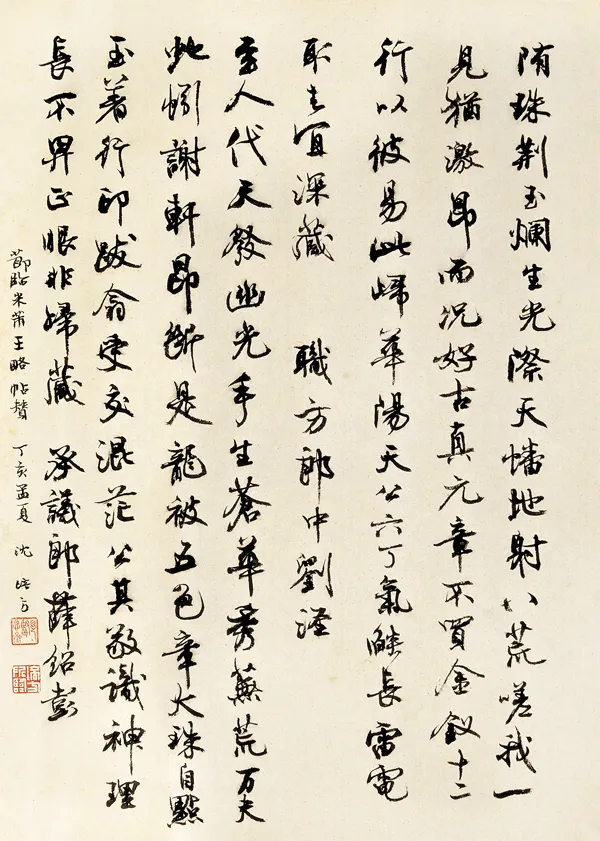 隋珠荆玉爛生光際天幡地射八荒嗟我一
見猶激昂而況好古真元章不買金釵十二
行以彼易此歸華陽天公六丁氣燄長雷電
取去宜深藏 職方郎中劉涇
至人代天發幽光手生蒼華秀蕪荒万夫
地謝軒昂斷是龍被五色章大珠自點
玉著行印跋翕受交混茫公其敬識神理
長不畀正眼非歸藏 承議郎薛紹彭
節臨米芾王略帖贊 丁亥孟夏 沈培方